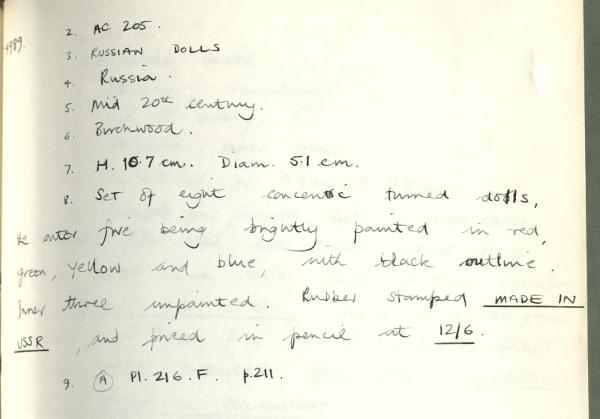 1989.
2. AC 205.
3. RUSSIAN DOLLS
4. Russia.
5. Mid 20th century.
6. Birchwood.
7. H. 10.7 cm. Diam. 5.1 cm.
8. Set of eight concentric turned dolls,
the outer five being brightly painted in red,
green, yellow and blue, with black outline.
Inner three unpainted. Rubber stamped MADE IN
USSR, and priced in pencil at 12/6.
9. A Pl. 216. F. p.211.